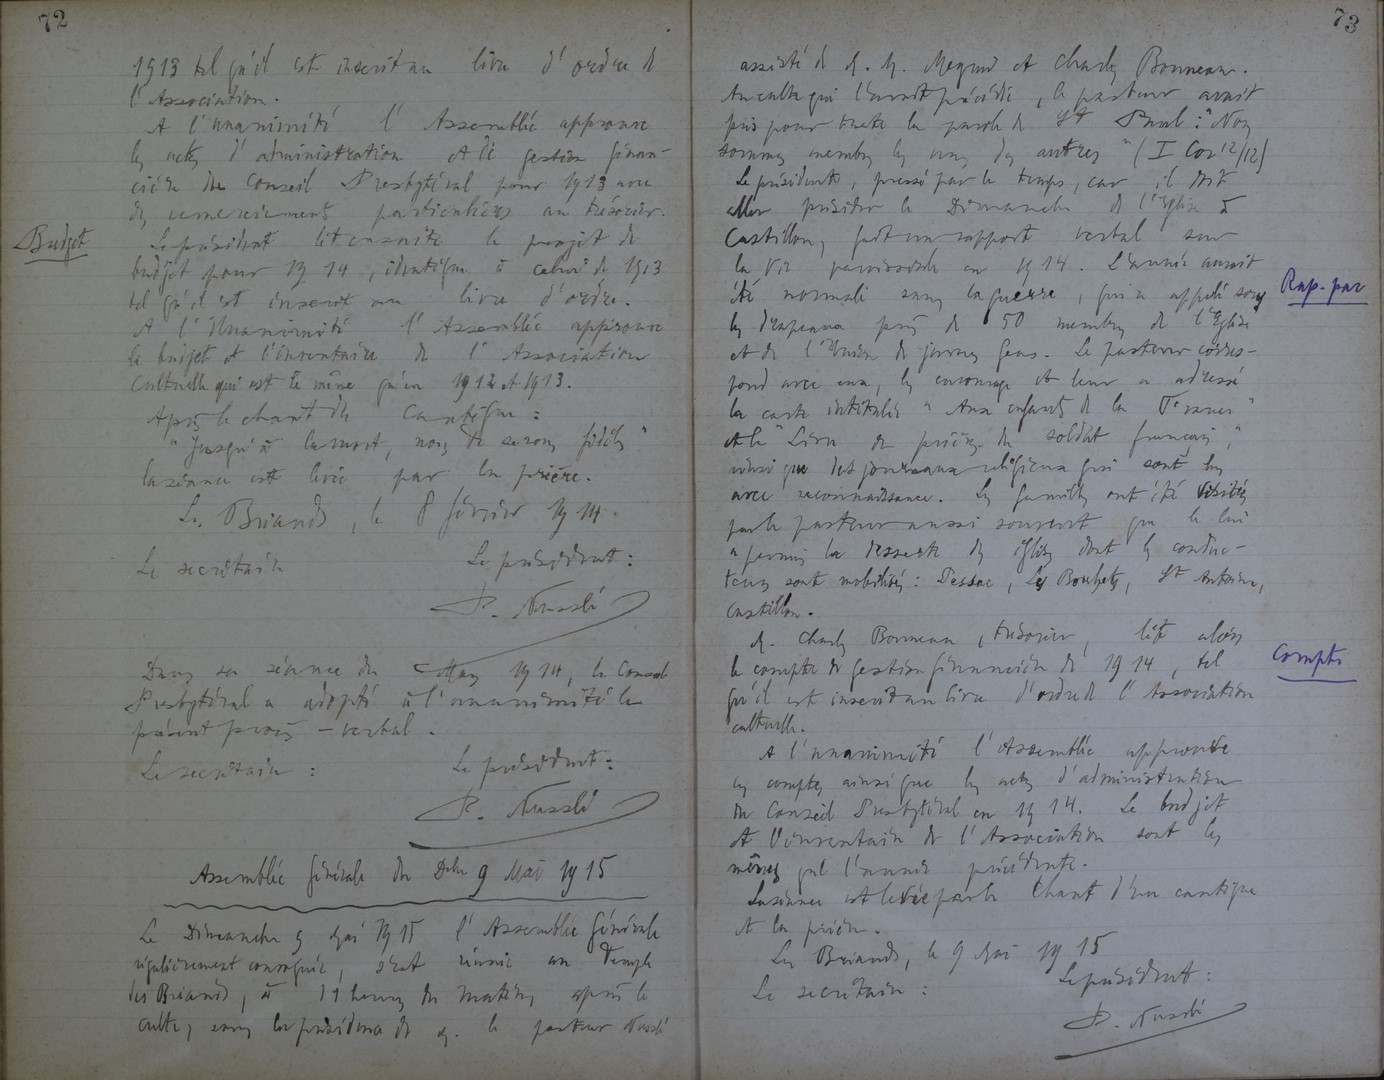 72
1913 tel qu'il est inscrit au livre d'ordre de
l'Association.
A l'unanimité l'Assemblée approuve
les actes d'administration et de gestion finan-
cière du Conseil Presbytéral pour 1913 avec
des remerciements particuliers au trésorier.
Budget
Le président lit ensuite le projet de
budget pour 1914, identique à celui de 1913
tel qu'il est inscrit au livre d'ordre.
A l'Unanimité l'Assemblée approuve
le budget et l'inventaire de l'Association
Cultuelle qui est le même qu'en 1912 et 1913.
Après le chant du Cantique :
"Jusqu'à la mort, nous te serons fidèles"
la séance est levée par la prière.
Les Briands, le 8 février 1914.
Le secrétaire
Le président :
P. Nusslé
Dans sa séance du Mars 1914, le Conseil
Presbytéral a adopté à l'unanimité le
présent procès-verbal.
Le secrétaire :
Le président :
P. Nusslé
Assemblée Générale du Dche 9 Mai 1915
Le Dimanche 9 Mai 1915 l'Assemblée Générale
régulièrement convoquée, s'est réunie au Temple
des Briands, à 11 heures du matin, après le
culte, sous la présidence de M. le pasteur Nusslé
73
assisté de M. M. et Charles Bonneau.
Au culte qui l'avait précédée, le pasteur avait
pris pour texte la parole de St Paul : "Nous
sommes membres les uns des autres" (I Cor 12/12)
Le président, pressé par le temps, car il doit
aller présider le Dimanche de l'Eglise à
Castillon, fait un rapport verbal sur
la vie paroissiale en 1914. L'année aurait
Rap. par
été normale sans la guerre, qui a appelé sous
les drapeaux près de 50 membres de l'Eglise
et de l'Union de jeunes Gens. Le pasteur corres-
pond avec eux, les encourage et leur a adressé
la carte intitulée "Aux enfants de la France"
et le "Livre de prières du soldat français,"
ainsi que des journaux religieux qui sont lus
avec reconnaissance. Les familles ont été visitées
par le pasteur aussi souvent que le lui
a permis la desserte des Eglises dont les conduc-
teurs sont mobilisés : Pessac, Les Bouhets, St Antoine,
Castillon.
M. Charles Bonneau, trésorier, lit alors
Compte
le compte de gestion financière de 1914, tel
qu'il est inscrit au livre d'ordre de l'Association
cultuelle.
A l'unanimité l'Assemblée approuve
ces comptes ainsi que les actes d'administration
du Conseil Presbytéral en 1914. Le budget
et l'inventaire de l'Association sont les
mêmes que l'année précédente.
La séance est levée par le Chant d'un cantique
et la prière.
Les Briands, le 9 Mai 1915
Le secrétaire :
Le président :
P. Nusslé